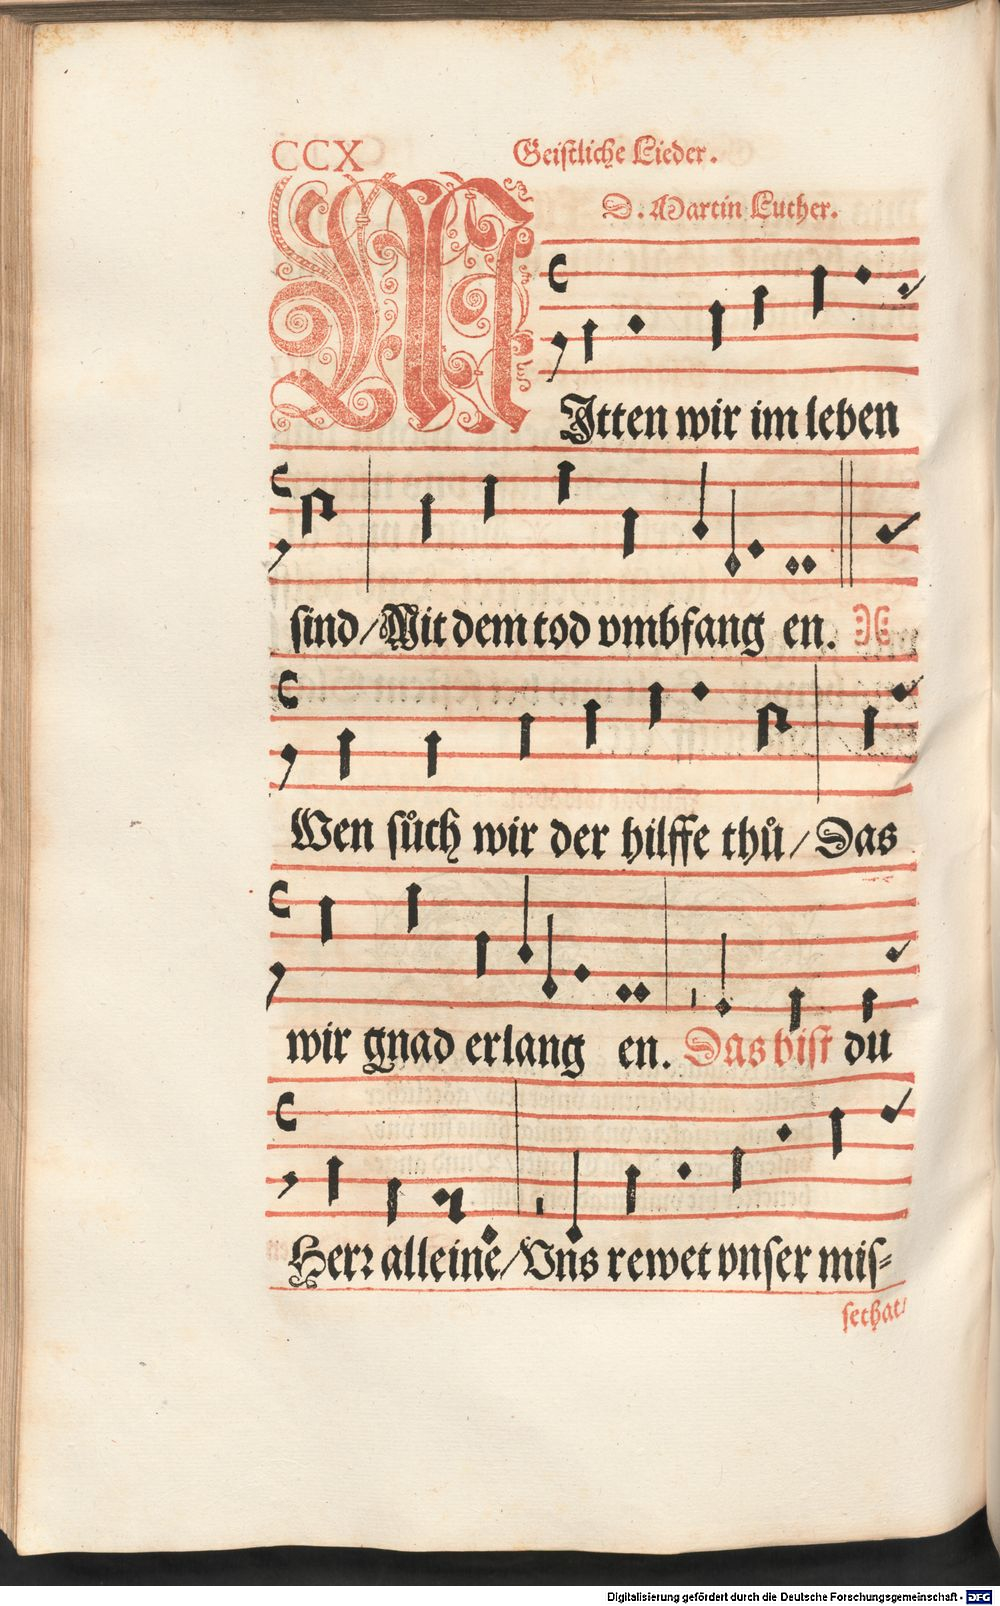 CCX Geistliche Lieder.
D. Martin Luther.
MItten wir im leben
sind/Mit dem tod vmbfang en.
Wen sůch wir der hilffe thů/Das
wir gnad erlang en. Das bist du
Herr alleine/Vns rewet vnser mis⸗
sethat/
Digitalisierung gefördert durch die Deutsche Forschungsgemeinschaft - DFG